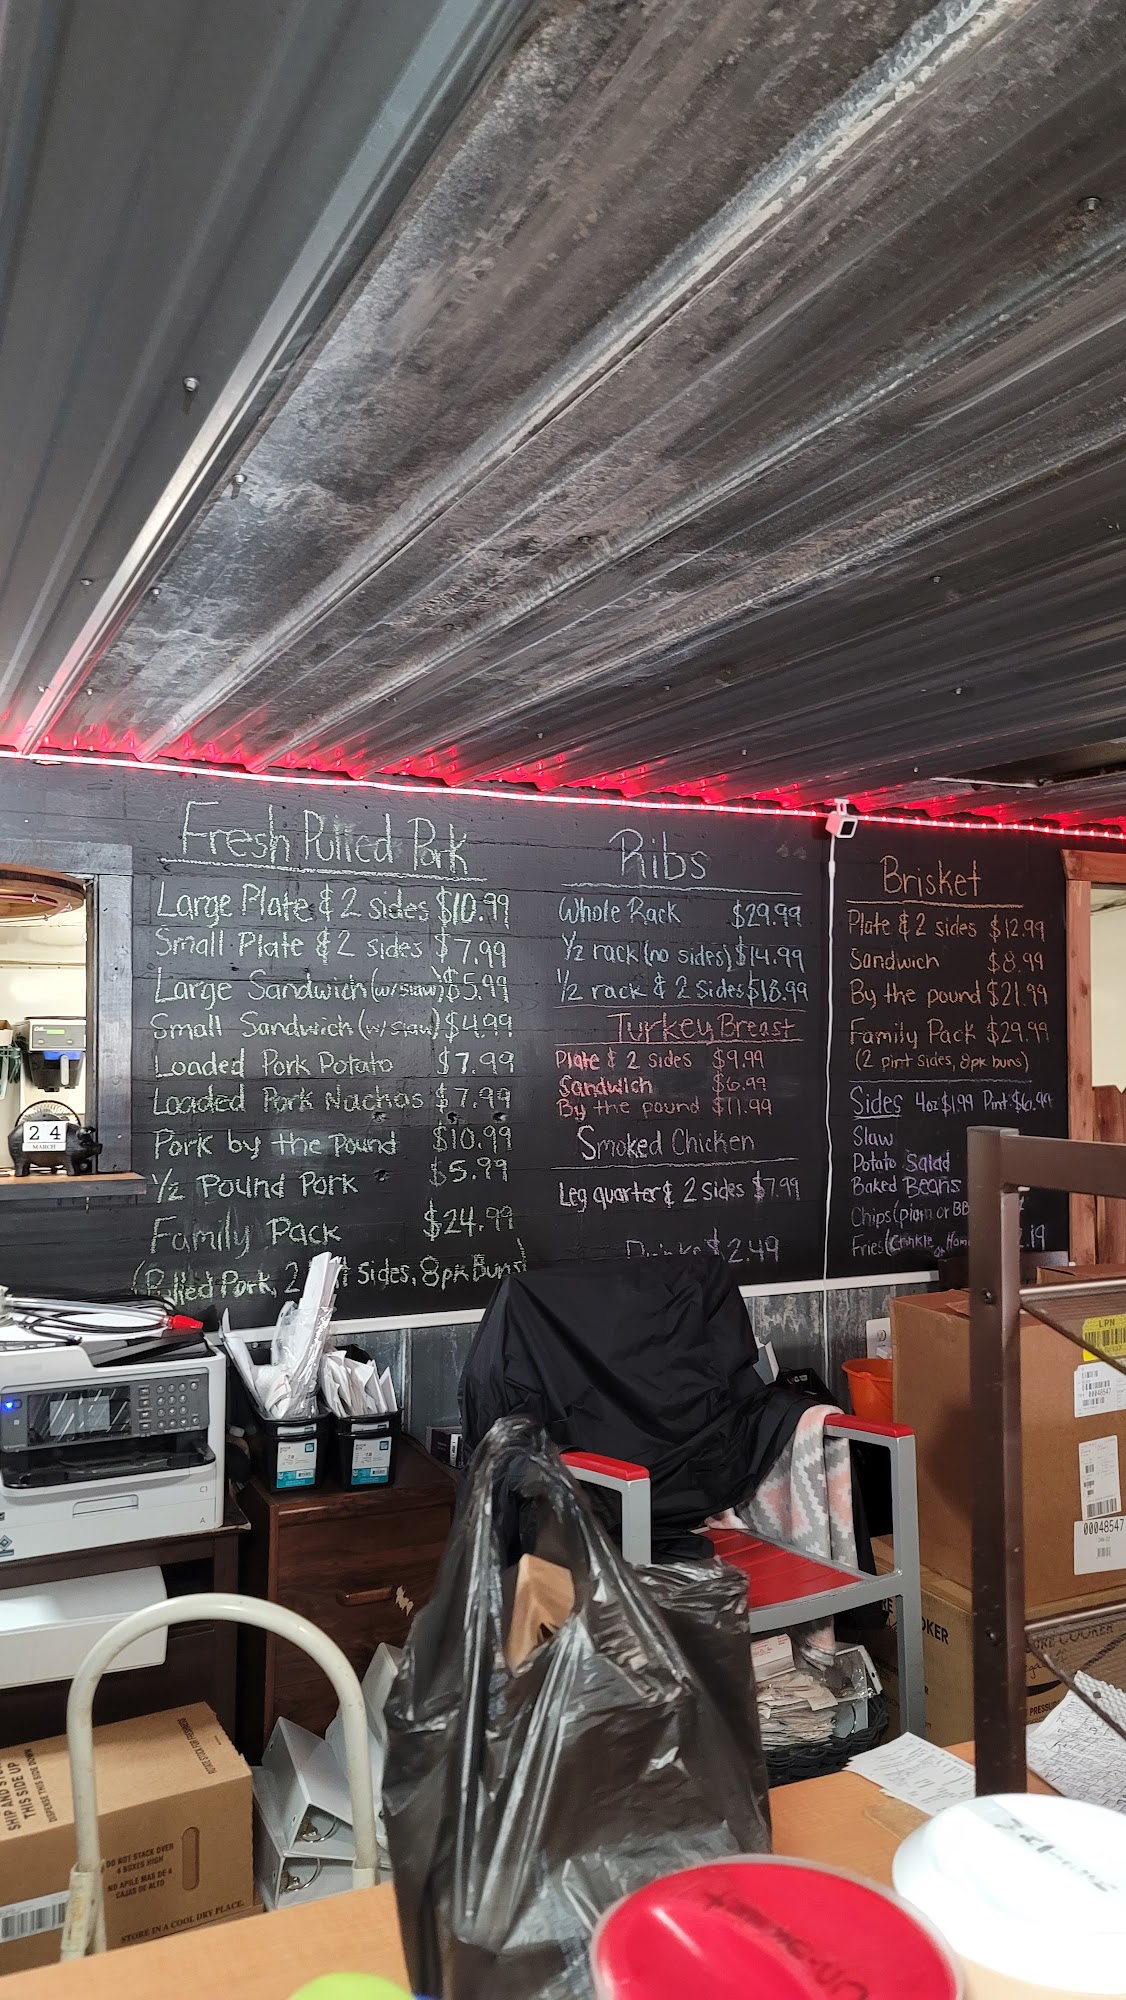 Fresh Pulled Pork
Large Plate & 2 sides $10.99
Small Plate & 2 sides $7.99
Large Sandwich (w/slaw) $5.99
Small Sandwich (w/slaw) $4.99
Loaded Pork Potato $7.99
Loaded Pork Nachos $7.99
Pork by the Pound $10.99
1/2 Pound Pork $5.99
Family Pack $24.99
(Pulled Pork, 2 sides, 8pk Buns)
Ribs
Whole Rack $29.99
1/2 rack (no sides) $14.99
1/2 rack & 2 Sides $18.99
Turkey Breast
Plate & 2 sides $9.99
Sandwich $6.99
By the pound $11.99
Smoked Chicken
Leg quarter & 2 sides $7.99
Drinks $2.49
Brisket
Plate & 2 sides $12.99
Sandwich $8.99
By the pound $21.99
Family Pack $29.99
(2 pint sides, 8pk buns)
Sides 4oz $1.99 Pint $6.99
Slaw
Potato Salad
Baked Beans
Chips (plain or BB
Fries (Crinkle or Hom 2.19
24
MARCH
LPN
00048547
00048547
OKER
RE COOKER
SHIP AND
THIS SIDE UP
DISPENSE THIS SIDE DOWN
DO NOT STACK OVER
4 BOXES HIGH
NO APILE MAS DE 4
CAJAS DE ALTO
STORE IN A COOL DRY PLACE.
C1
A